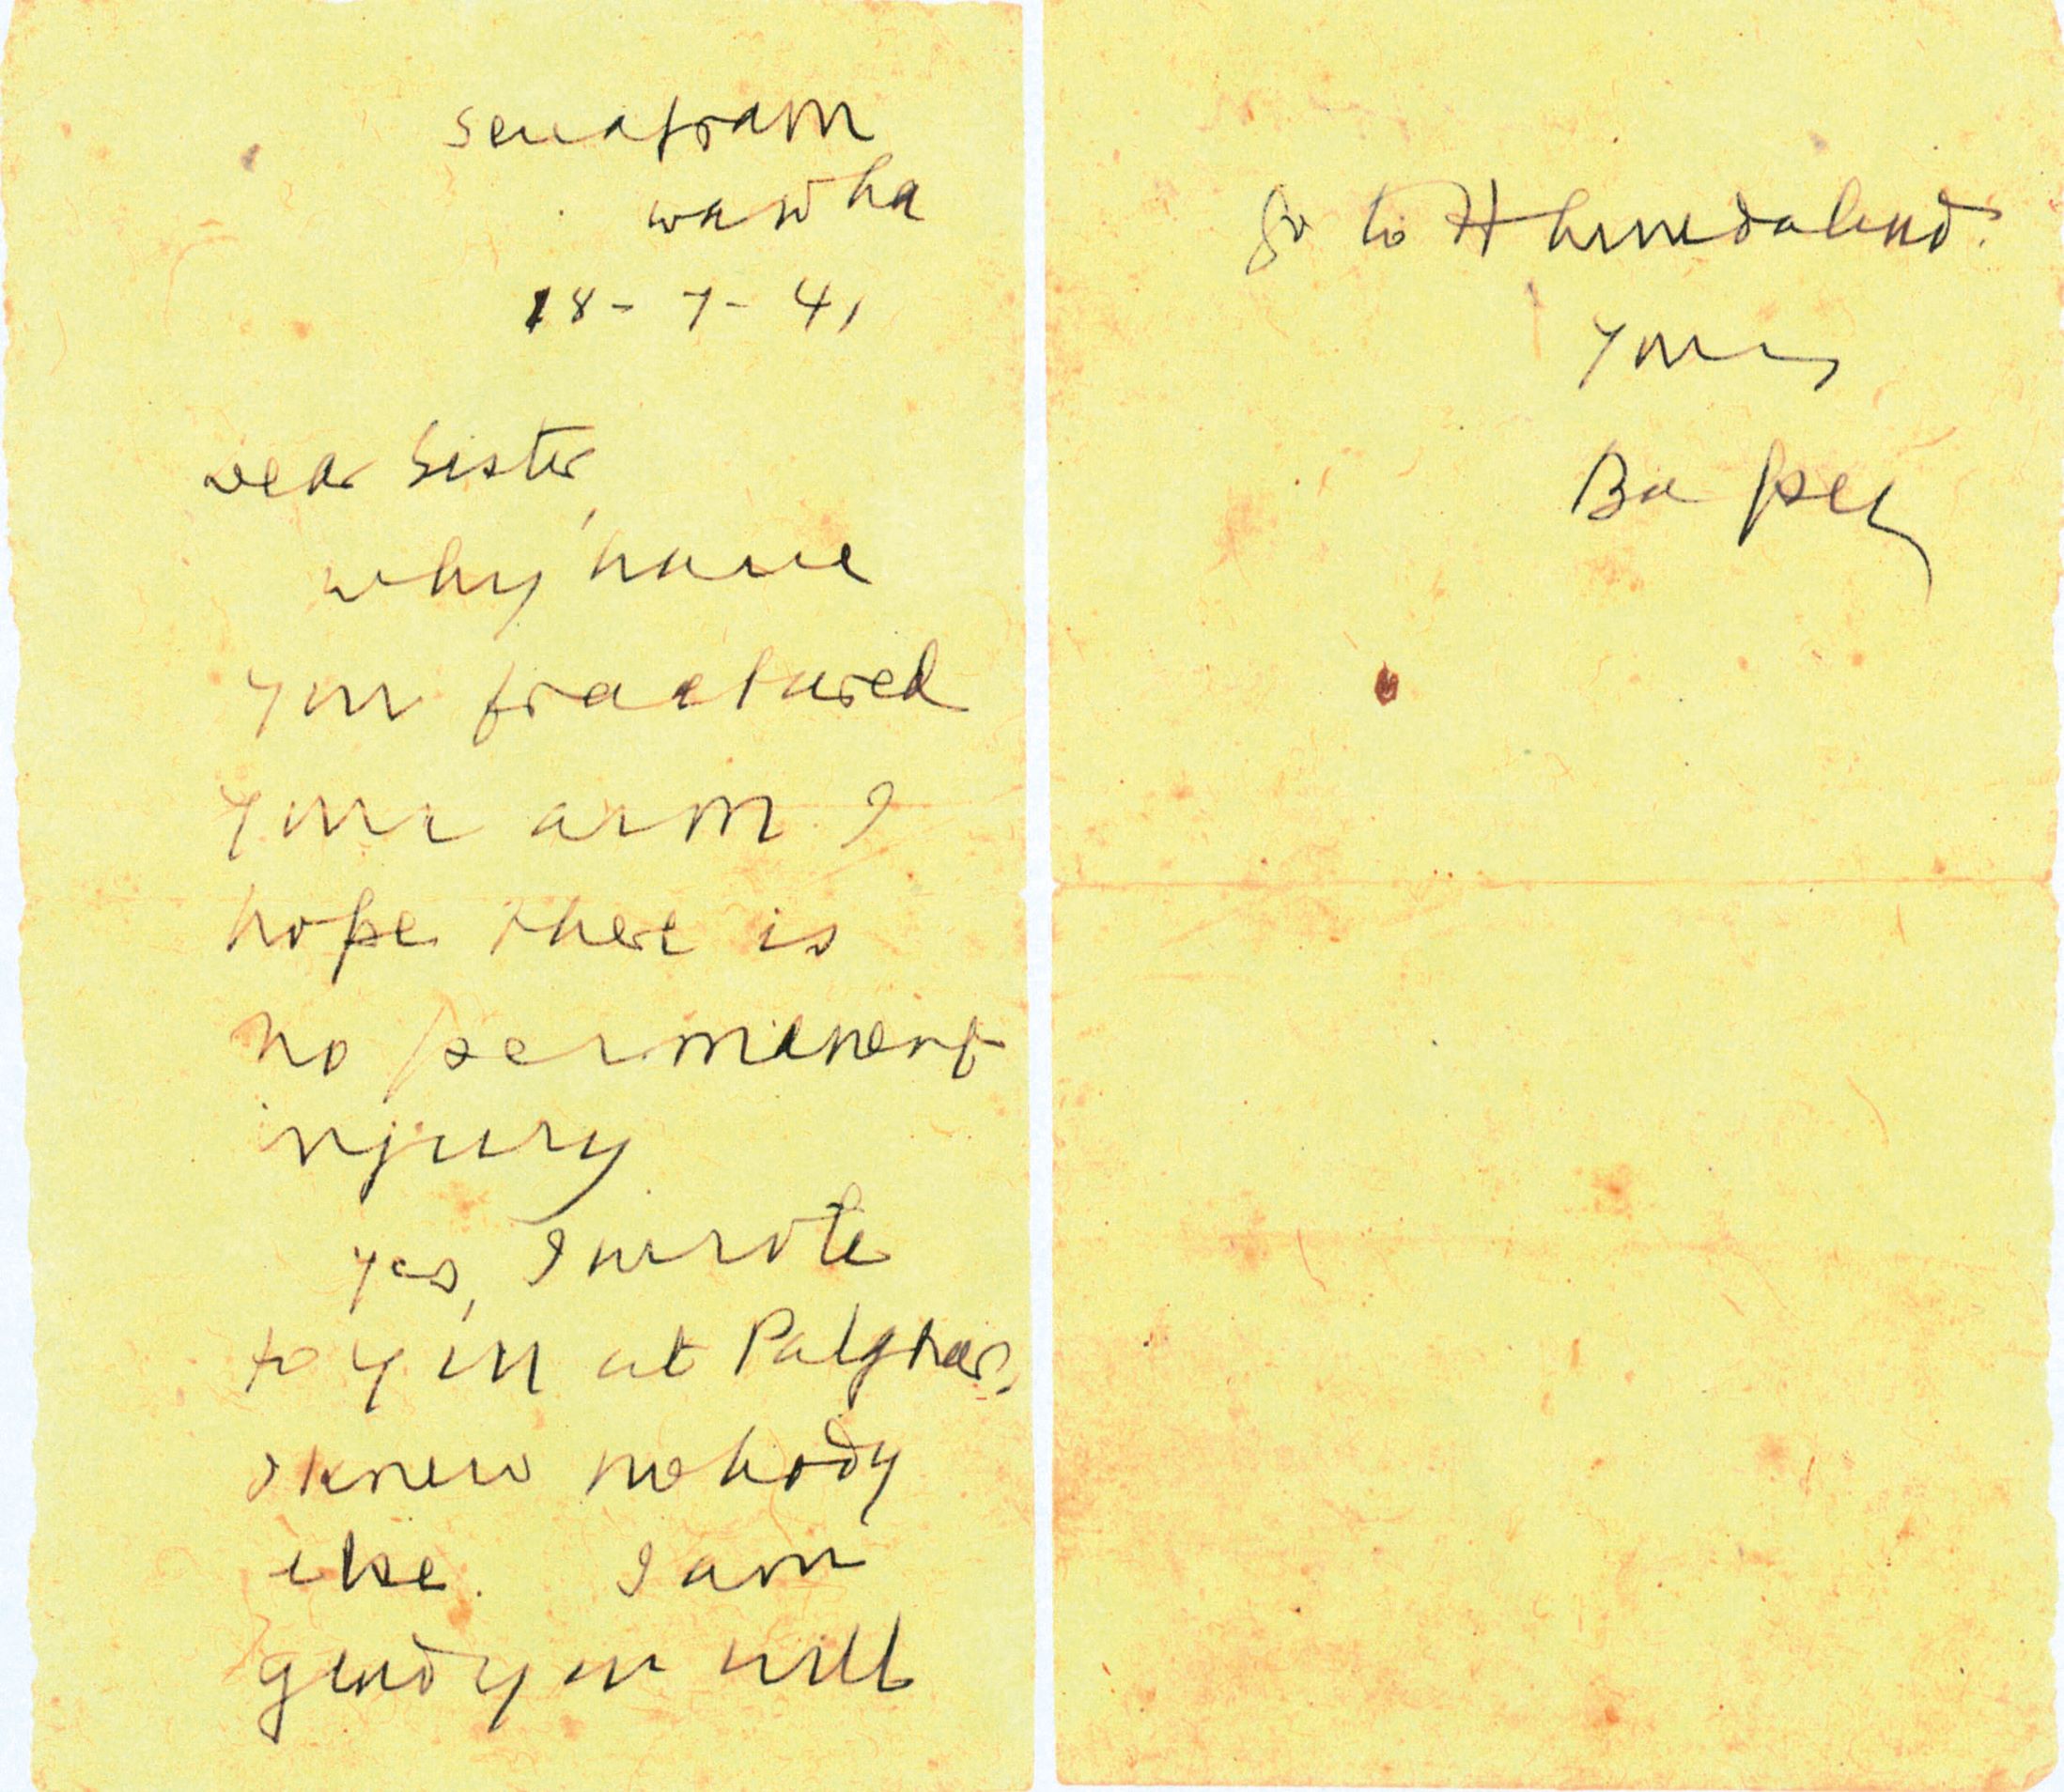 Sevagram
Wardha
18-7-41
Dear Sister,
Why have
you fractured
your arm ? I
hope there is
no permanent
injury
Yes, I wrote
to you at Palghar.
I knew nobody
else. I am
glad you will
go to Ahmedabad.
Yours
Bapu